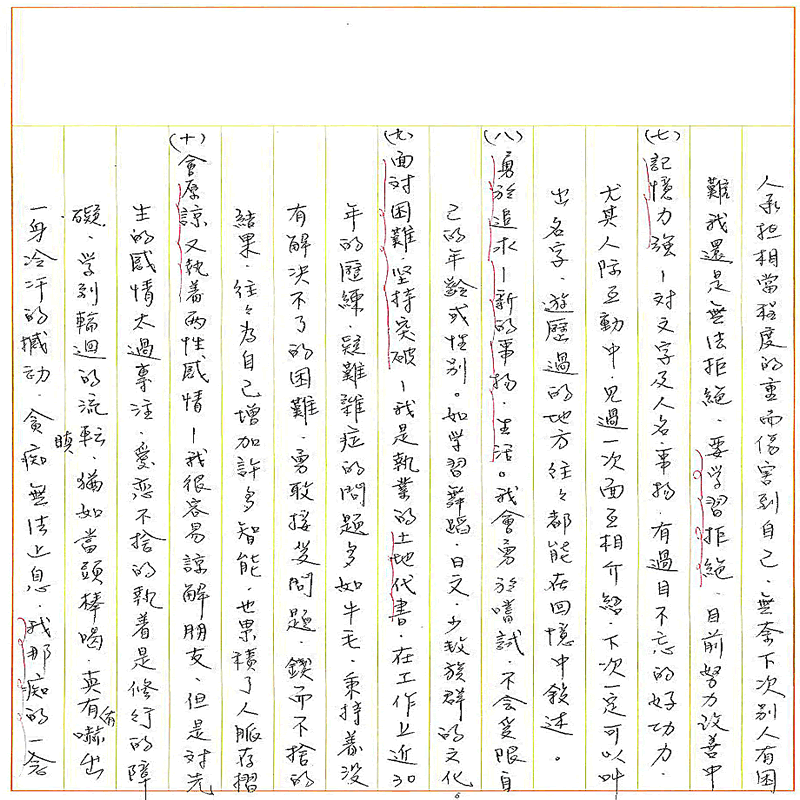 人承担相當程度的重而傷害到自己．無奈下次別人有困
難我還是無法拒絕．要學習拒絕．目前努力改善中
(七)記憶力強—对文字及人名．事物．有過目不忘的好功力．
尤其人际互動中．見過一次面互相介紹．下次一定可以叫
出名字．遊歷過的地方往々都能在回憶中敘述。
(八)勇於追求—新的事物．生活。我會勇於嚐試．不会受限自
己的年齡或性別。如学習舞蹈．日文．少数族群的文化。
(九)面对困難．坚持突破—我是執業的土地代書．在工作上近30
年的歷練．疑難雜症的問題多如牛毛．秉持着没
有解决不了的困難．勇敢接受問題．鍥而不捨的
結果．往々為自己增加許多智能．也累積了人脈存摺
(十)會原諒又執着两性感情—我很容易諒解朋友．但是对先
生的感情太過專注．愛恋不捨的執着是修行的障
礙．学到輪迴的流転．猶如當頭棒喝．真有嚇出
一身冷汗的撼动．貪瞋痴無法止息．我那痴的一念